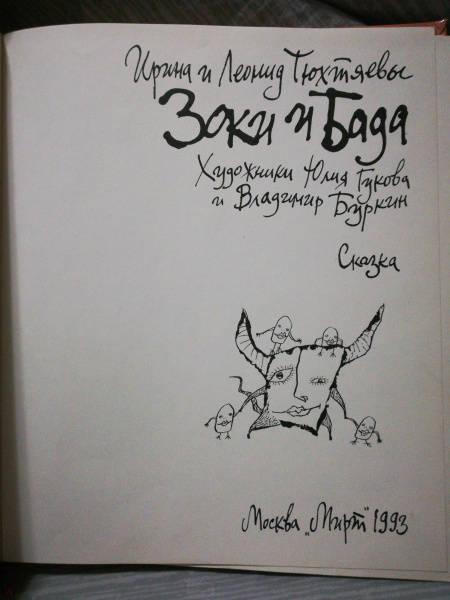 Ирина и Леонид Тюхтяевы
Зоки и Бада
Художники Юлия Гукова
и Владимир Буркин
Сказка
Москва „Мирт" 1993